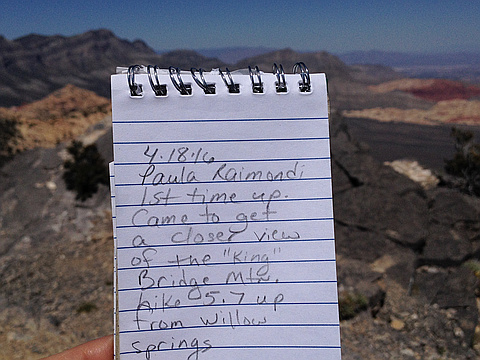 4.18.16
Paula Raimondi
1st time up.
Came to get
a closer view
of the "King"
Bridge Mtn.
hike 5.7 up
from Willow
springs